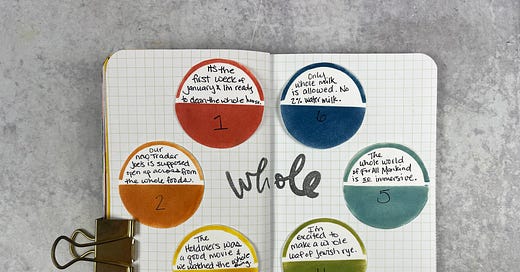 It's the
first week of
january & I'm ready
to clean the whole house.
1
our
new Trader
Joe's is supposed
open up across from
the whole foods.
2
The
Holdovers was
a good movie &
we watched the whole
whole
Only
whole milk
is allowed. No
2% water milk.
6
The
whole world
of For All Mankind
is so immersive.
5
I'm
excited to
make a whole
loaf of Jewish rye.